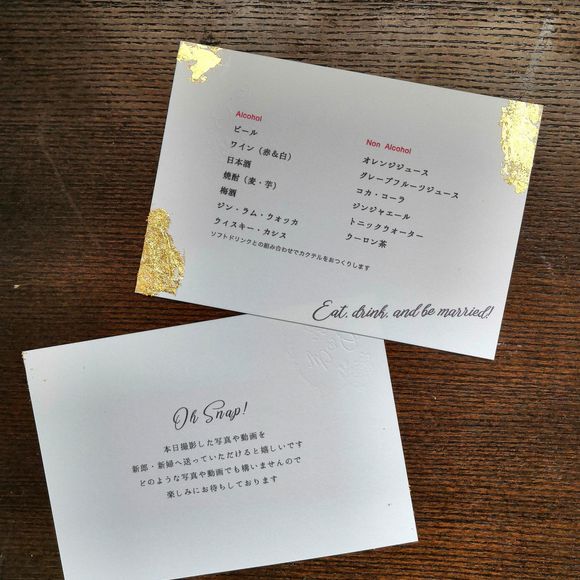 Alcohol
ビール
ワイン（赤＆白）
日本酒
焼酎（麦・芋）
梅酒
ジン・ラム・ウオッカ
ウイスキー・カシス
ソフトドリンクとの組み合わせでカクテルをおつくりします
Non Alcohol
オレンジジュース
グレープフルーツジュース
コカ・コーラ
ジンジャエール
トニックウオーター
ウーロン茶
Eat, drink, and be married!
Oh Snap!
本日撮影した写真や動画を
新郎・新婦へ送っていただけると嬉しいです
どのような写真や動画でも構いませんので
楽しみにお待ちしております